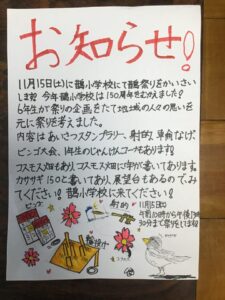 お知らせ!
11月15日(土)に鵲小学校にて鵲祭りをかいさい
します。今年鵲小学校は150周年をむかえました!
6年生が祭りの企画をたて地域の人々の思いを
元に祭りを考えました。
内容はあいさつスタンプラリー、射的、輪なげ、
ビンゴ大会、1年生のじゃんけんコーナもあります。
コスモス畑もあり、コスモス畑に字が書いてあります。
カササギ150と書いてあり、展望台もあるのでみ
てください!鵲小学校に来てください!
ビンゴ
射的
輪投げ
コスモス
11月15日(土)
午前10時から午後1時
30分まで祭りをしています